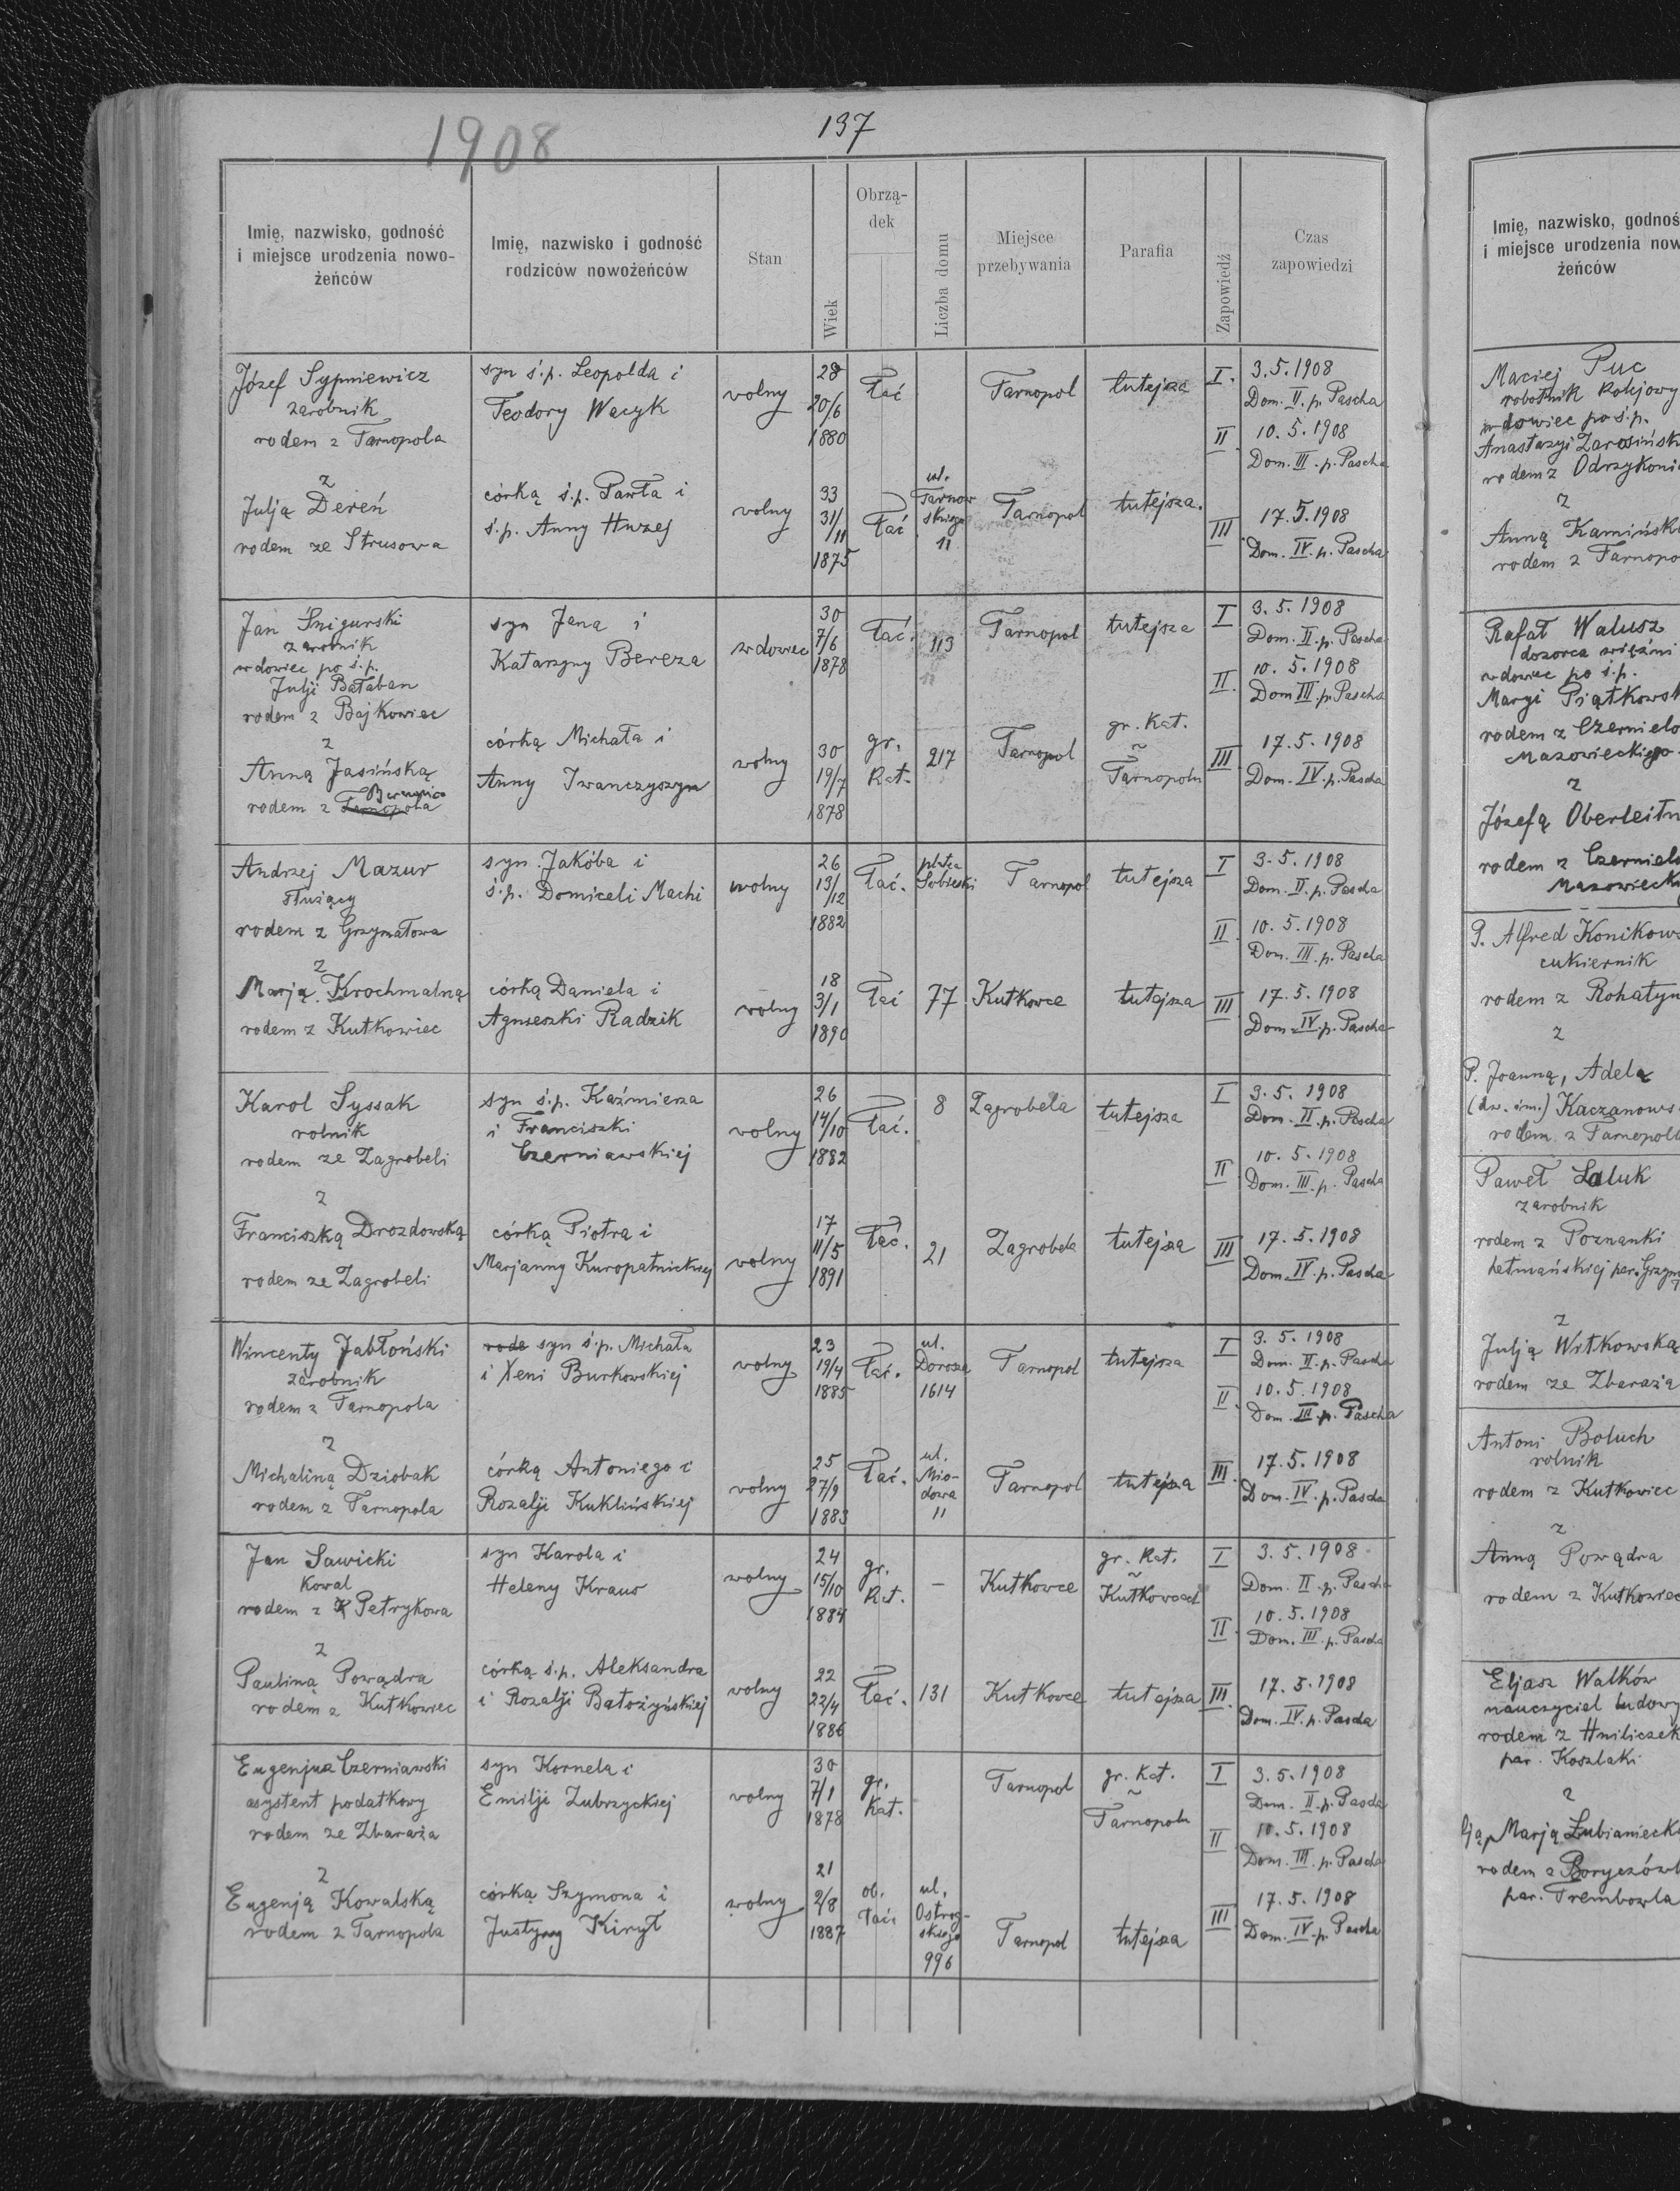 1908
137
Imię, nazwisko, godność
i miejsce urodzenia nowo-
żeńców
Imię, nazwisko i godność
rodziców nowożeńców
Stan
Wiek
Obrzą-
dek
Liczba domu
Miejsce
przebywania
Parafia
Zapowiedź
Czas
zapowiedzi
Józef Sypniewicz
zarobnik
rodem z Tarnopola
z
Julją Dereń
rodem ze Strusowa
syn ś.p. Leopolda i
Teodory Wacyk
córką ś.p. Pawła i
ś.p. Anny Huzej
wolny
wolny
28
20/6
1880
33
31/
/11
1875
łać
łać
ul.
Tarnow
skiego
11
Tarnopol
Tarnopol
tutejsza
tutejsza.
I.
II
III
3.5.1908
Dom. II. p. Pascha
10.5.1908
Dom. III. p. Pascha
17.5.1908
Dom. IV. p. Pascha
Jan Śnigurski
zarobnik
wdowiec po ś.p.
Julji Bałaban
rodem z Bajkowiec
z
Anną Jasińską
rodem z
syn Jana i
Katarzyny Bereza
córką Michała i
Anny Iwanczyszyn
wdowiec
wolny
30
7/6
1878
30
19/7
1878
łać.
gr.
Kat.
113
217
Tarnopol
Tarnopol
tutejsza
gr. Kat.
~
Tarnopolu
I
II.
III
3.5.1908
Dom. II. p. Pascha
10.5.1908
Dom III. p. Pascha
17.5.1908
Dom. IV. p. Pascha
Andrzej Mazur
służący
rodem z Grzymałowa
z
Marją Krochmalną
rodem z Kutkowiec
syn Jakóba i
ś.p. Domiceli Machi
córką Daniela i
Agnieszki Radzik
wolny
wolny
26
13/
/12
1882
18
3/1
1890
łać.
łać
Sobieski
77
Tarnopol
Kutkowce
tutejsza
tutejsza
I
II.
III
3.5.1908
Dom. II. p. Pascha
10.5.1908
Dom. III. p. Pascha
17.5.1908
Dom. IV. p. Pascha
Karol Syssak
rolnik
rodem ze Zagrobeli
z
Franciszką Drozdowską
rodem ze Zagrobeli
syn ś.p. Kaźmierza
i Franciszki
Czerniawskiej
córką Piotra i
Marjanny Kuropatnickiej
wolny
wolny
26
14/10
1882
17
11/5
1891
łać.
łać.
8
21
Zagrobela
Zagrobela
tutejsza
tutejsza
I
II
III
3.5.1908
Dom. II. p. Pascha
10.5.1908
Dom. III. p. Pascha
17.5.1908
Dom. IV. p. Pascha
Wincenty Jabłoński
zarobnik
rodem z Tarnopola
z
Michaliną Dziobak
rodem z Tarnopola
rode syn ś.p. Michała
i Xeni Burkowskiej
córką Antoniego i
Rozalji Kuklińskiej
wolny
wolny
23
19/4
1885
25
27/9
1883
łać.
łać.
ul.
Doroza
1614
ul.
Mio-
dowa
11
Tarnopol
Tarnopol
tutejsza
tutejsza
I
II.
III.
3.5.1908
Dom. II. p. Pascha
10.5.1908
Dom. III. p. Pascha
17.5.1908
Dom. IV. p. Pascha
Jan Sawicki
kowal
rodem z Petrykowa
z
Pauliną Powądra
rodem z Kutkowiec
syn Karola i
Heleny Kraus
córką ś.p. Aleksandra
i Rozalji Bałożyńskiej
wolny
wolny
24
15/10
1884
22
22/4
1886
gr.
Kat.
łać.
–
131
Kutkowce
Kutkowce
gr. Kat.
~
Kutkowcach
tutejsza
I
II.
III
3.5.1908
Dom. II. p. Pascha
10.5.1908
Dom. III. p. Pascha
17.5.1908
Dom. IV. p. Pascha
Eugenjusz Czerniawski
asystent podatkowy
rodem ze Zbaraża
z
Eugenją Kowalską
rodem z Tarnopola
syn Kornela i
Emilji Zubrzyckiej
córką Szymona i
Justyny Kirył
wolny
wolny
30
7/1
1878
21
2/8
1887
gr.
Kat.
ob.
łać.
ul.
Ostrog-
skiego
996
Tarnopol
Tarnopol
gr. Kat.
~
Tarnopolu
tutejsza
I
II
III
3.5.1908
Dom. II. p. Pascha
10.5.1908
Dom. III. p. Pascha
17.5.1908
Dom. IV. p. Pascha
Imię, nazwisko, godnoś
i miejsce urodzenia now
żeńców
Maciej Puc
robotnik kolejowy
wdowiec po ś.p.
Anastazyi Zarosińsk
rodem z Odrzykoni
z
Anną Kamińsk
rodem z Tarnopo
Rafał Walusz
dozorca więźni
wdowiec po ś.p.
Maryi Piątkowsk
rodem z Czernielo
Mazowieckiego
z
Józefą Oberleitn
rodem z Czernielo
Mazowieck
P. Alfred Konikows
cukiernik
rodem z Rohatyn
z
P. Joanną, Adelą
(dw. im.) Kaczanows
rodem z Tarnopol
Paweł Łaluk
zarobnik
rodem z Poznanki
hetmańskiej par. Grzym
z
Julją Witkowską
rodem ze Zbaraża
Antoni Boluch
rolnik
rodem z Kutkowiec
z
Anną Powądra
rodem z Kutkowiec
Eljasz Walków
nauczyciel ludowy
rodem z Hniliczek
par. Koszlaki
z
Marją Łubianieck
rodem z Boryczówk
par. Trembowla